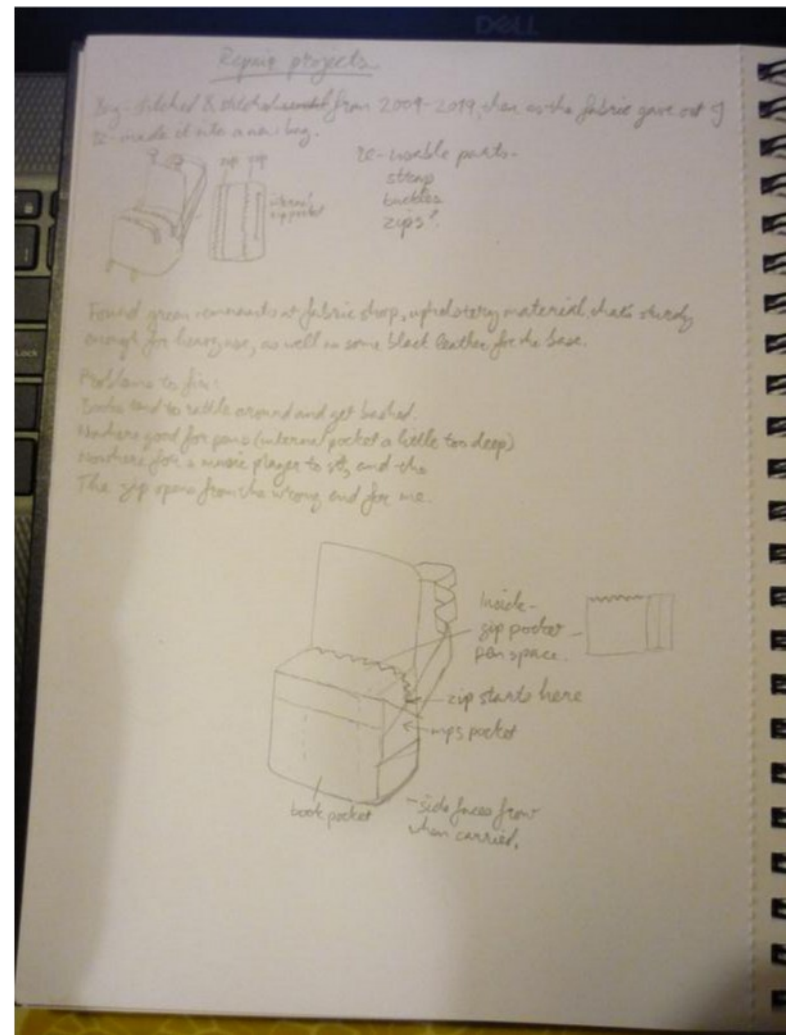 DELL
Lock
Repair projects
Bag - stitched & stitched from 2009-2019, then as the fabric gave out I
re-made it into a new bag.
zip zip
internal
zip pocket
re-usable parts-
strap
buckles
zips?
Found green remnants at fabric shop, upholstery material, that's sturdy
enough for heavy use, as well as some black leather for the base.
Problems to fix:
Books tend to rattle around and get bashed.
Nowhere good for pens (internal pocket a little too deep)
Nowhere for a music player to sit, and the
The zip opens from the wrong end for me.
Inside-
zip pocket
pen space.
zip starts here
mp3 pocket
book pocket
-side faces front
when carried.